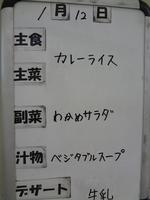 1月12日
主食
カレーライス
主菜
副菜 わかめサラダ
汁物 ベジタブルスープ
デザート 牛乳